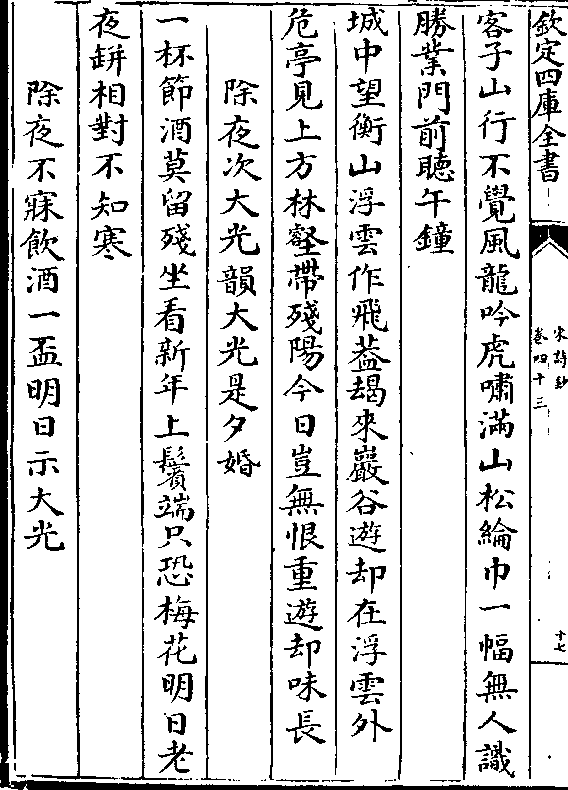 欽定四庫全書
宋詩鈔
卷四十三
十七
客子山行不覺風龍吟虎嘯滿山松綸巾一幅無人識
勝業門前聽午鐘
城中望衡山浮雲作飛葢朅來巖谷遊却在浮雲外
危亭見上方林壑帶殘陽今日豈無恨重遊却味長
除夜次大光韻大光是夕婚
一杯節酒莫留殘坐看新年上鬢端只恐梅花明日老
夜缾相對不知寒
除夜不寐飲酒一盃明日示大光